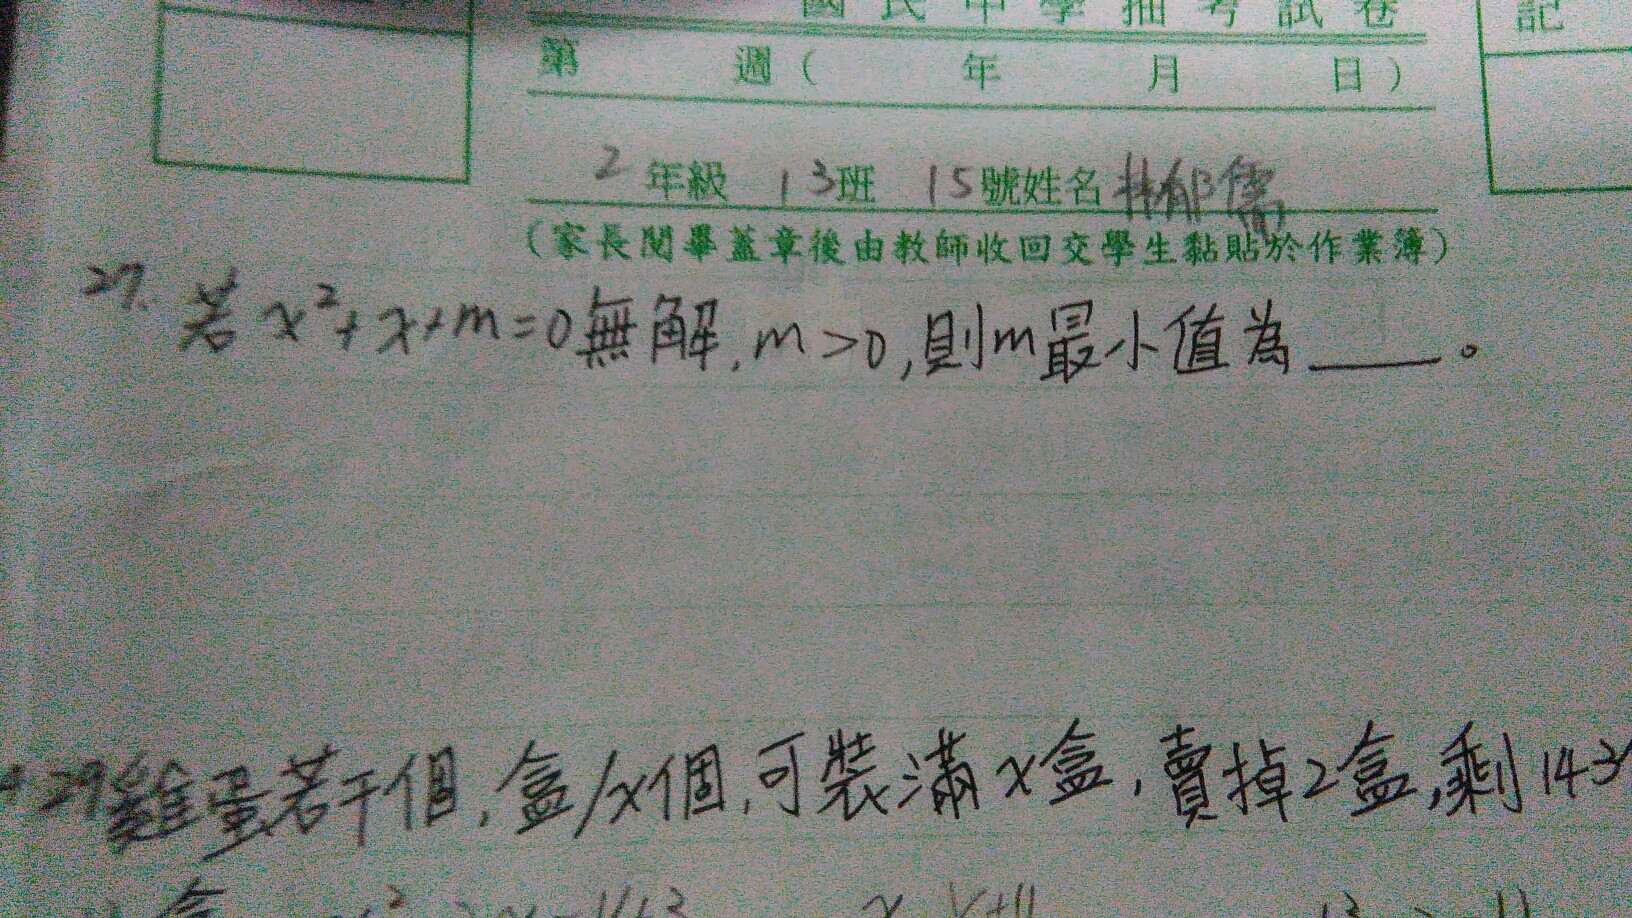 國民中學抽考試卷
記
第 週( 年 月 日)
2年級 13班 15號姓名林郁儒
(家長閱畢蓋章後由教師收回交學生黏貼於作業簿)
27. 若x²+x+m=0無解,m>0,則m最小值為____。
29雞蛋若干個,盒/x個,可裝滿x盒,賣掉2盒,剩143